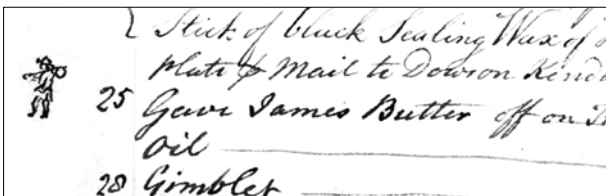 Stick of black Sealing Wax of
Plate & Mail to Dowson
25 Gave James Butter off on
Oil
28 Gimblet